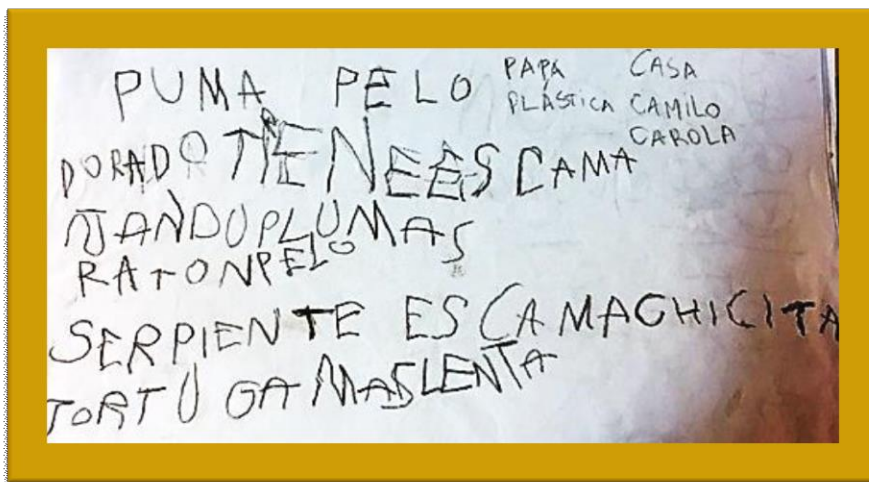 PUMA PELO
PAPA CASA
PLÁSTICA CAMILO
CAROLA
DORADO TIENEESCAMA
ÑANDUPLUMAS
RATONPELO
SERPIENTE ESCAMACHICITA
TORTUGA MASLENTA